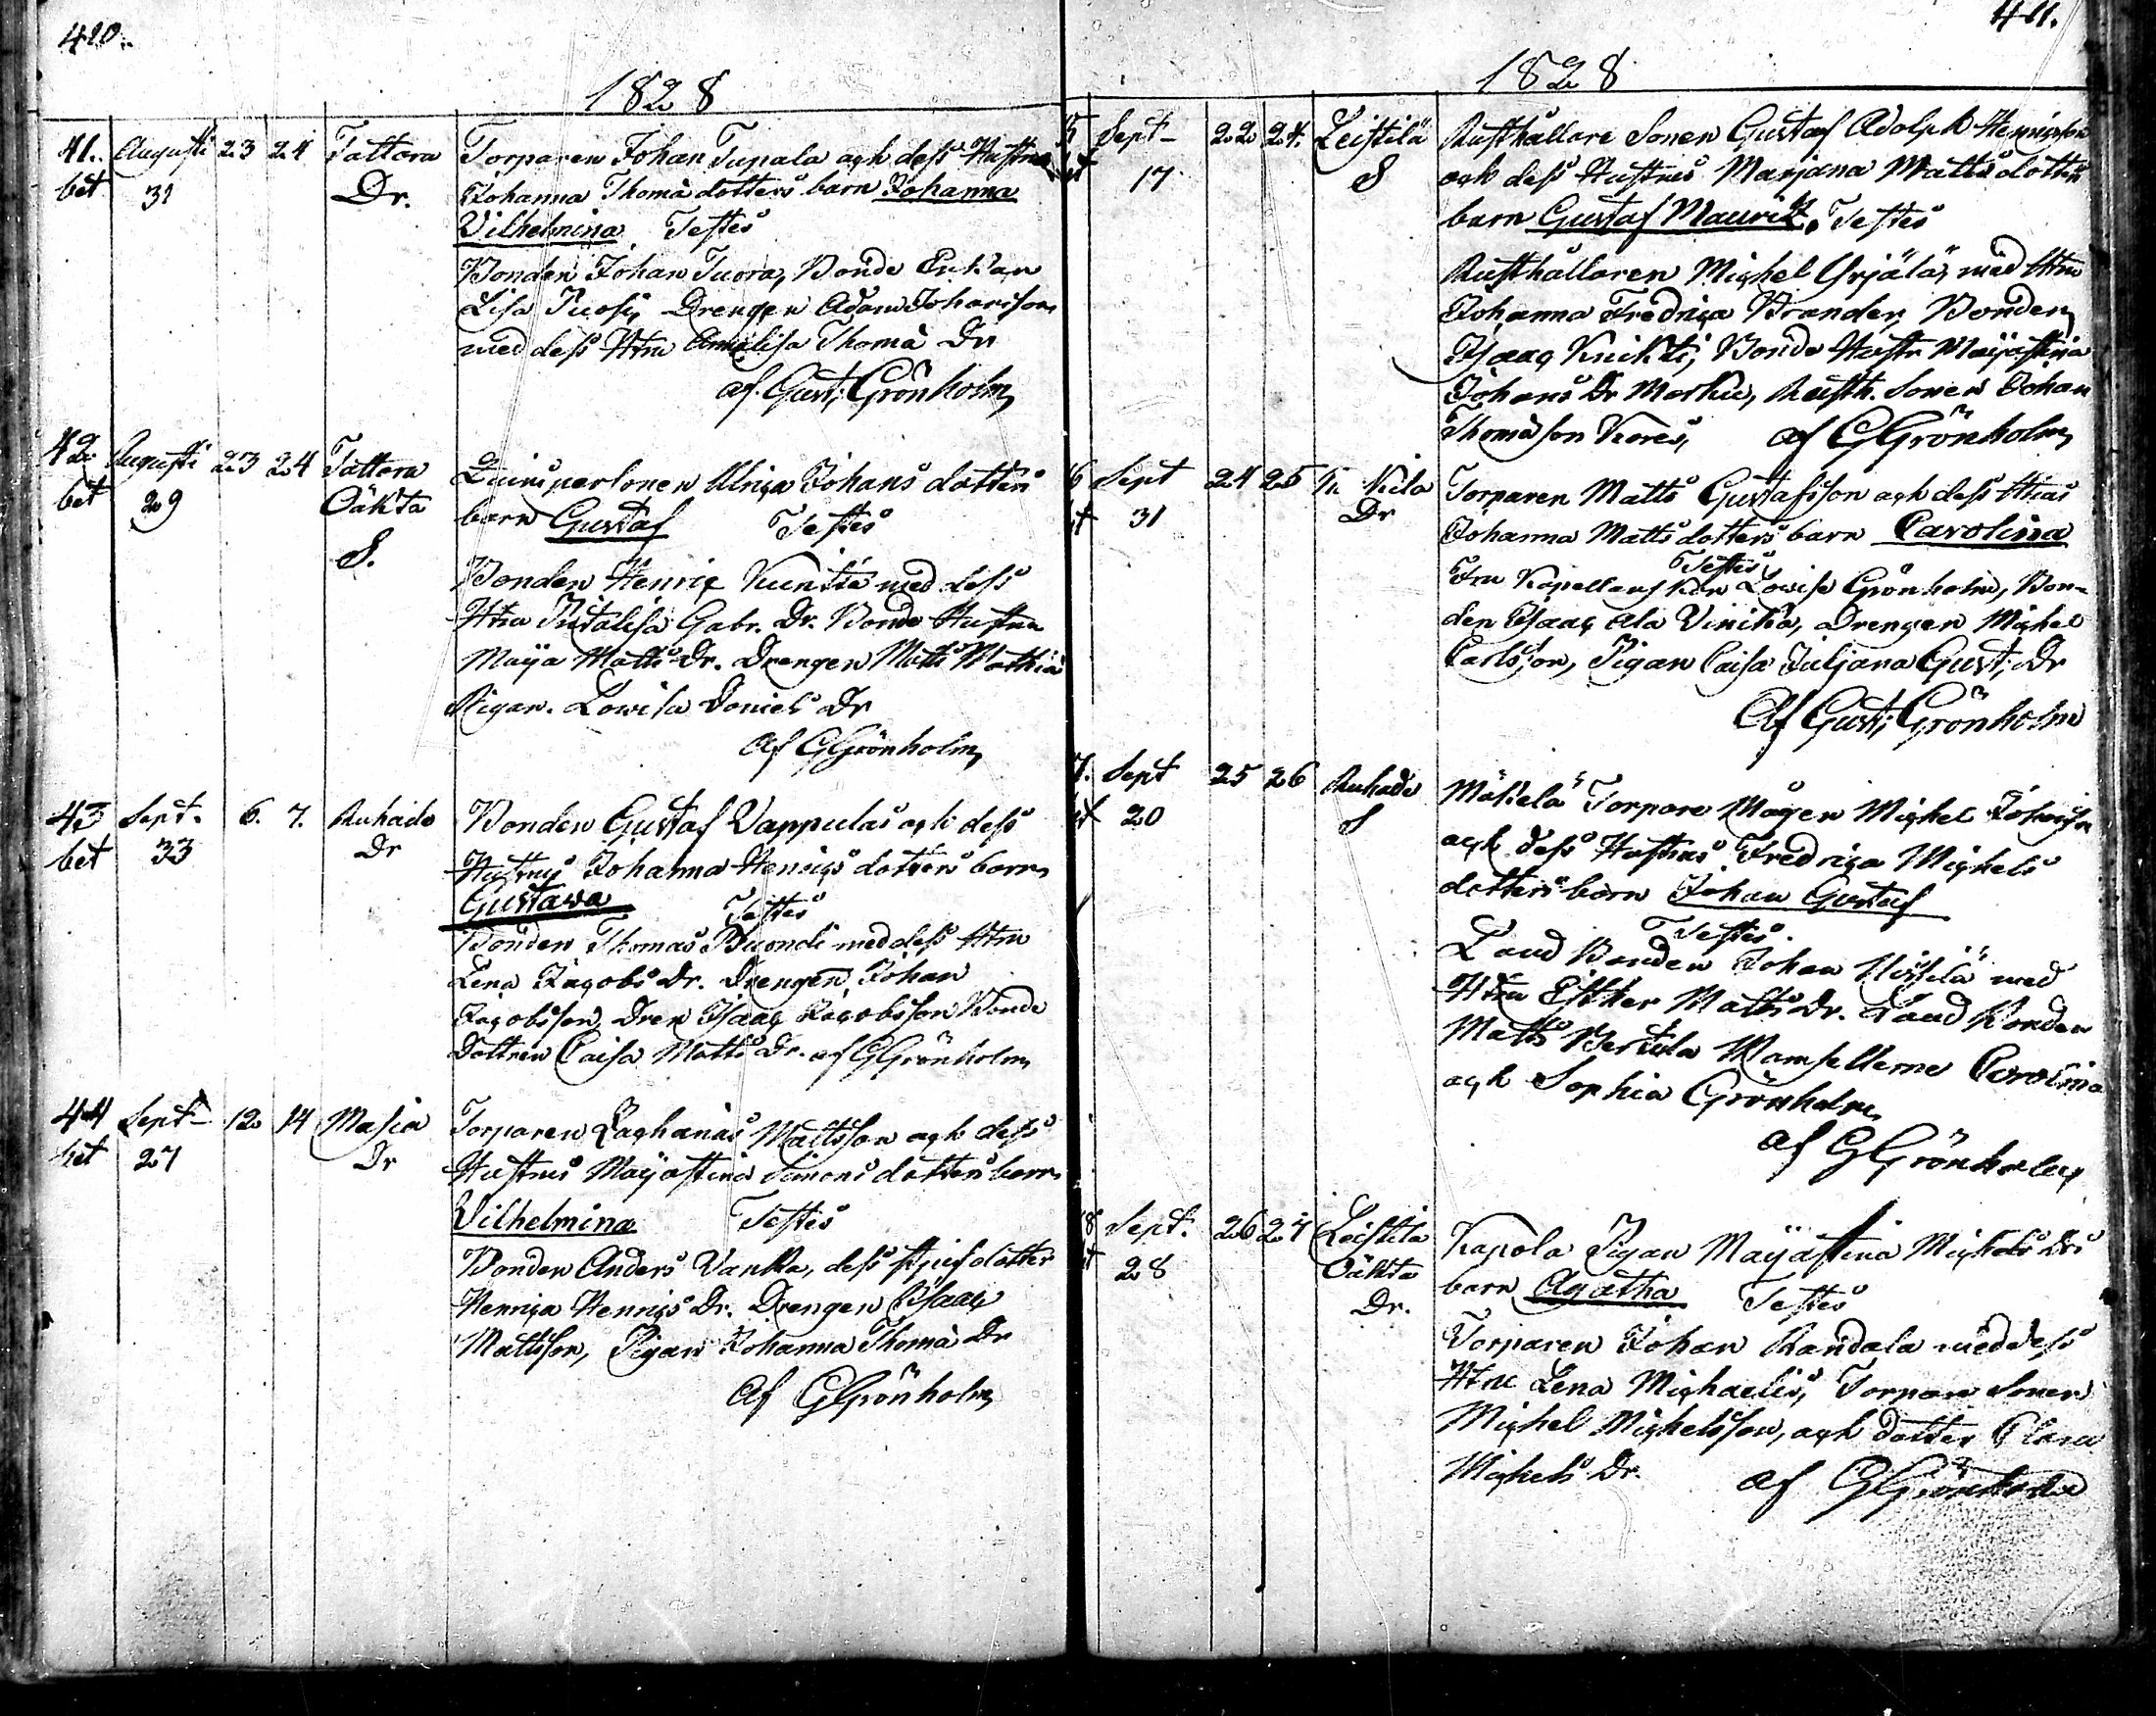 410.
1828
41. Augusti 23 24 Tattara Torparen Johan Tupala och dess Hustrus
bet 31 Dr. Johanna Thomä dotters barn Johanna
Vilhelmina Testes
Bonden Johan Tuora, Bonde Enkan
Lisa Tuori, Drengen Adam Johansson
med dess Htru Annalisa Thomä Dr
af Gust: Grönholm
42. Augusti 23 24 Tattara Qvinspersonen Ulrica Johans dotters
bet 29 Oäkta barn Gustaf Testes
S.
Bonden Henric med dess
Htru Gabr. Dr. Bonde Hustru
Maija Matts Dr. Drengen Matts
Pigan Lowisa Daniels Dr
af GGrönholm
43 Sept. 6. 7. Ruhade Bonden Gustaf Vappulas och dess
bet 33 Dr Hustrus Johanna Henrics dotters barn
Gustava Testes
Bonden Thomas med dess Htru
Lena Jacobs Dr. Drengen Johan
Jacobsson, Dren Isaac Jacobsson Bonde
Dottren Caisa Matts Dr. af GGrönholm
44 Sept 12 14 Masia Torparen Zacharias Mattsson och dess
bet 27 Dr Hustrus Maijastina Simons dotters barn
Vilhelmina Testes
Bonden Anders Vanka, dess Styfdotter
Henrica Henrics Dr. Drengen Isaac
Mattsson, Pigan Johanna Thomä Dr
Af GGrönholm
411.
1828
5 Sept 22 24. Leistilä Rusthållare Sonen Gustaf Adolph Henricsson
17 S och dess Hustrus Marjana Matts dotters
barn Gustaf Mauritz. Testes
Rusthållaren Michel Yrjälä, med Htru
Johanna Fredrica Brander, Bonden
Isaac Knikti, Bonde Hustr Maijastina
Johans Dr Marku, Rusth. Sonen Johan
Thomasson Kares, af GGrönholm
6 Sept 24 25 Kila Torparen Matts Gustafsson och dess Htrus
31 Dr Johanna Matts dotters barn Carolina
Testes
Fru Kapellanskan Lowise Grönholm, Bon-
den Isaac Ala Vinika, Drengen Michel
Carlsson, Pigan Caisa Juljana Gust: Dr
Af Gust: Grönholm
7. Sept 25 26 Ruhade Mäkelä Torpare Mågen Michel Johansson
20 S och dess Hustrus Fredrica Michels
dotters barn Johan Gustaf
Testes.
Land Bonden Johan med
Htru Esther Matts Dr. Land Bonden
Matts Bertula Mamsellerne Carolina
och Sophia Grönholm
af GGrönholm
8 Sept. 26 27 Leistila Kapola Pigan Maijastina Michels Drs
28 Oäkta barn Agatha Testes
Dr.
Torparen Johan Randala med dess
Htru Lena Michaelis, Torpare Sonen
Michel Michelsson, och dotter Clara
Michels Dr. af GGrönholm